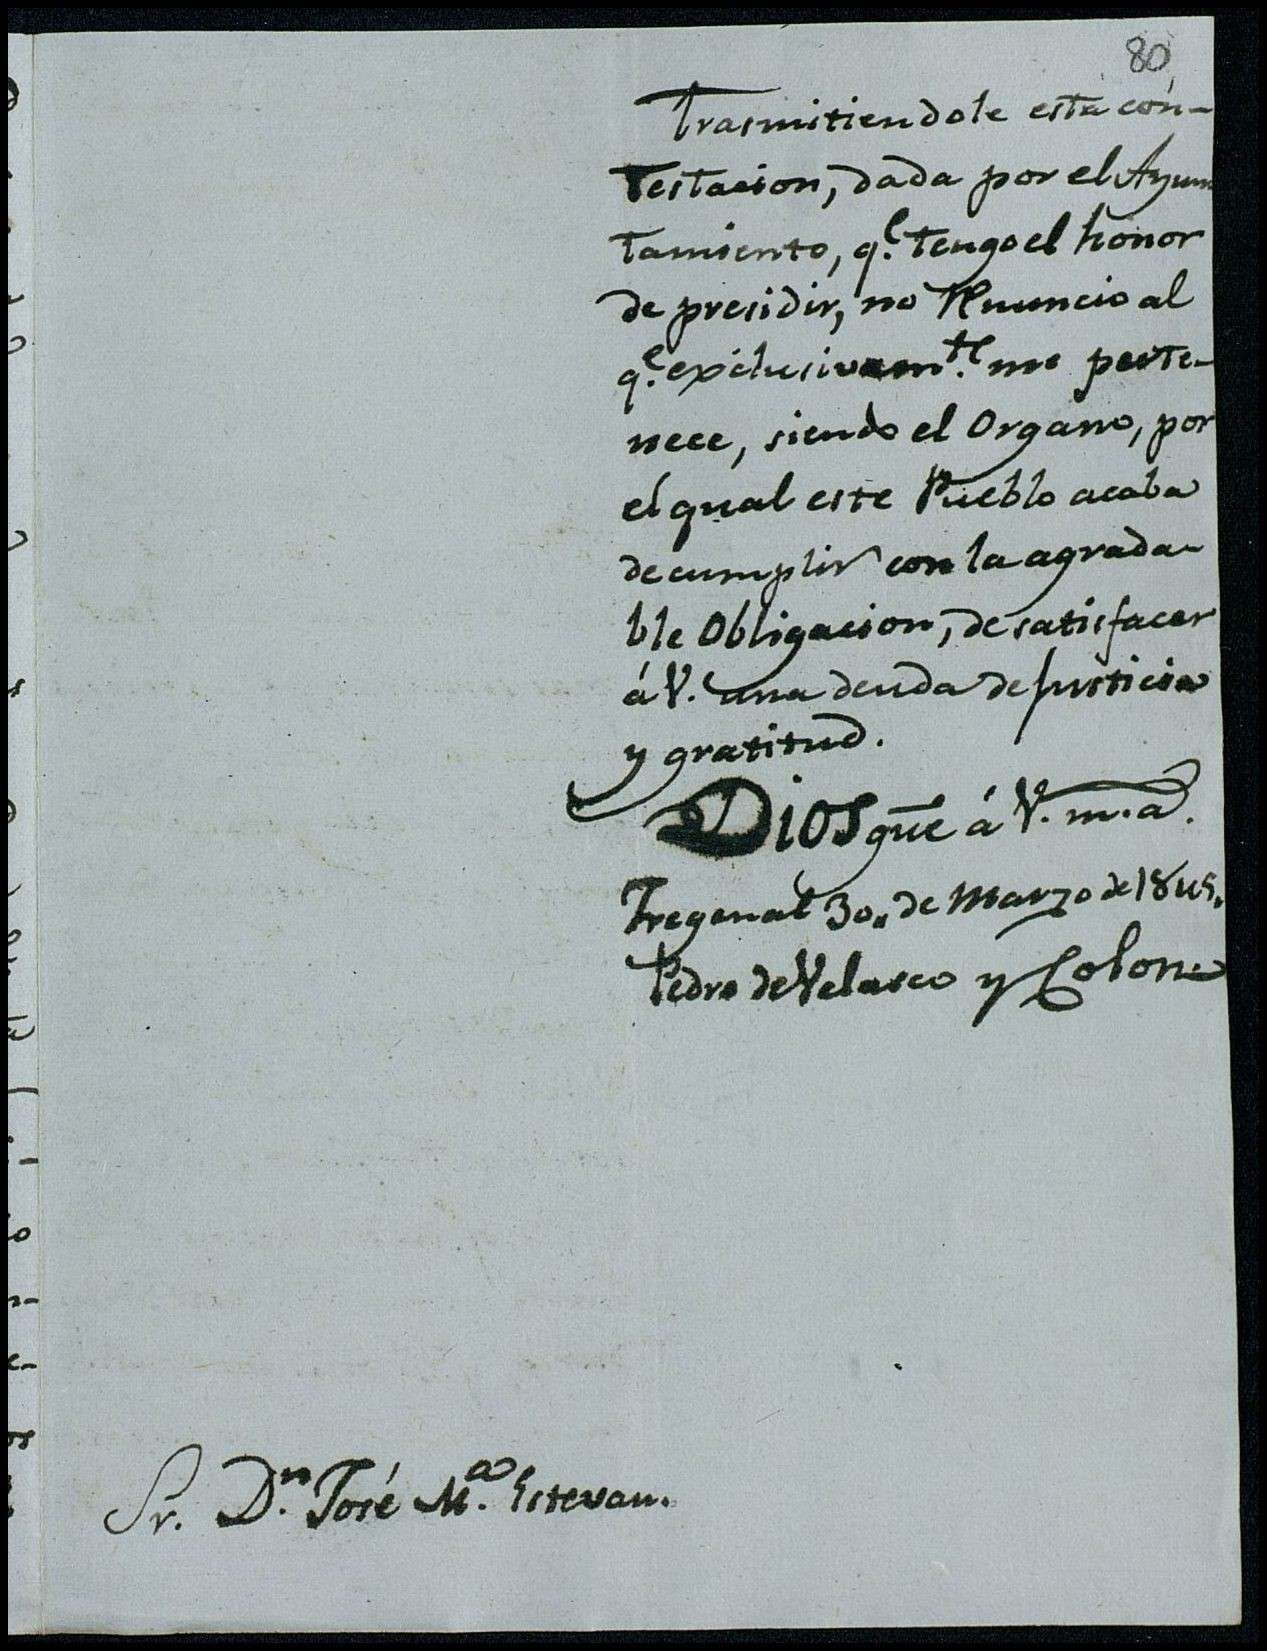 80
Trasmitiendole esta con-
testacion, dada por el Ayun
tamiento, q.e tengo el honor
de presidir, no Renuncio al
q.e exclusivam.te me perte-
nece, siendo el Organo, por
el qual este Pueblo acaba
de cumplir con la agrada-
ble Obligacion, de satisfacer
á V. una deuda de justicia
y gratitud.
Dios gue á V. m. a.
Fregenal 30,, de Marzo de 1845.
Pedro de Velasco y Colon
Sr. D.n José M.a Estevan.